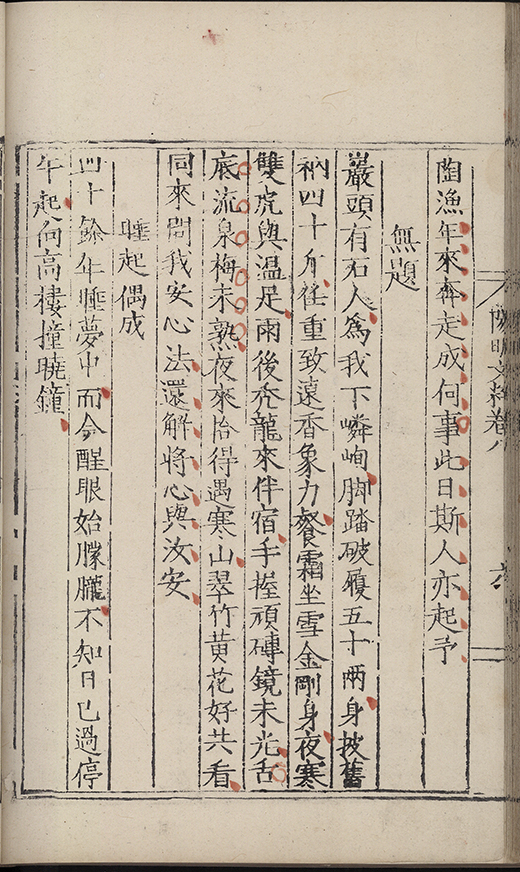 陽明文粹卷八
六
陶漁年來奔走成何事此日斯人亦起予
無題
巖頭有石人爲我下嶙峋脚踏破履五十兩身披舊
衲四十斤任重致遠香象力餐霜坐雪金剛身夜寒
雙虎與温足雨後禿龍來伴宿手握頑磚鏡未光舌
底流泉梅未熟夜來拾得遇寒山翠竹黄花好共看
同來問我安心法還解將心與汝安
睡起偶成
四十餘年睡夢中而今醒眼始朦朧不知日已過停
午起向高樓撞曉鐘